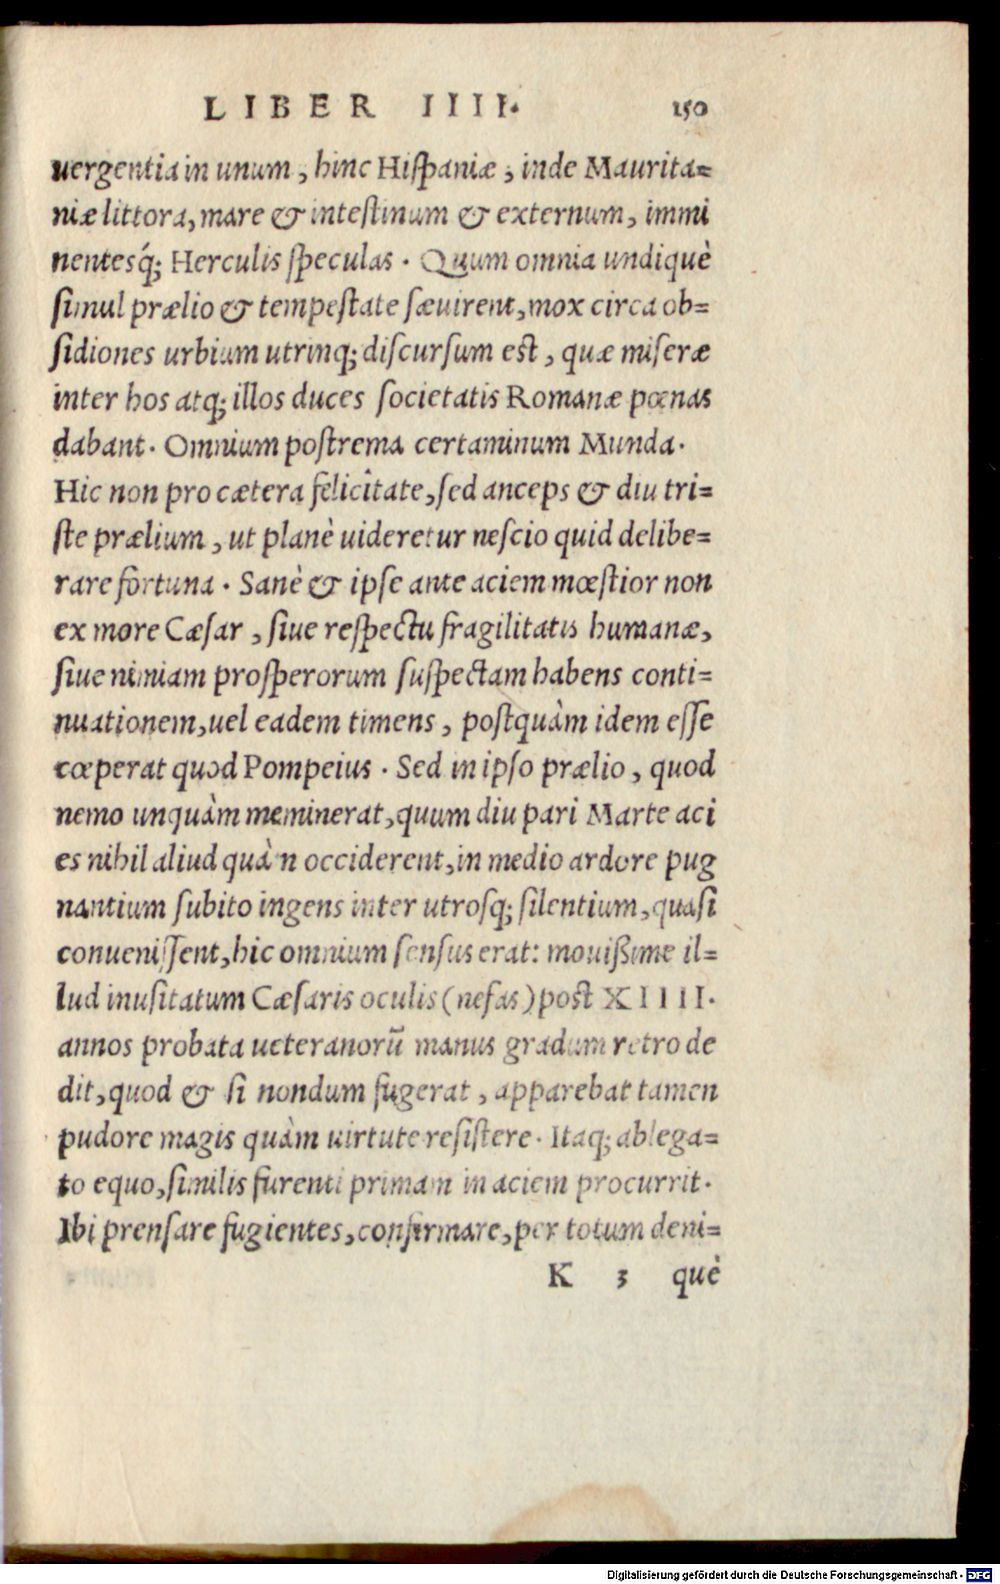 LIBER IIII. 150
uergentia in unum, hinc Hispaniæ, inde Maurita=
niæ littora, mare & intestinum & externum, immi
nentesq́; Herculis speculas. Quum omnia undiquè
simul prælio & tempestate sæuirent, mox circa ob=
sidiones urbium utrinq; discursum est, quæ miseræ
inter hos atq; illos duces societatis Romanæ pœnas
dabant. Omnium postrema certaminum Munda.
Hic non pro cætera felicîtate, sed anceps & diu tri=
ste prælium, ut planè uideretur nescio quid delibe=
rare fortuna. Sanè & ipse ante aciem mœstior non
ex more Cæsar, siue respectu fragilitatis humanæ,
siue nimiam prosperorum suspectam habens conti=
nuationem, uel eadem timens, postquàm idem esse
cœperat quod Pompeius. Sed in ipso prælio, quod
nemo unquàm meminerat, quum diu pari Marte aci
es nihil aliud quàm occiderent, in medio ardore pug
nantium subito ingens inter utrosq; silentium, quasi
conuenissent, hic omnium sensus erat: nouißime il=
lud inusitatum Cæsaris oculis (nefas) post XIIII.
annos probata ueteranorũ manus gradum retro de
dit, quod & si nondum fugerat, apparebat tamen
pudore magis quàm uirtute resistere. Itaq; ablega=
to equo, similis furenti primam in aciem procurrit.
Ibi prensare fugientes, confirmare, per totum deni=
K 3 què
Digitalisierung gefördert durch die Deutsche Forschungsgemeinschaft - DFG